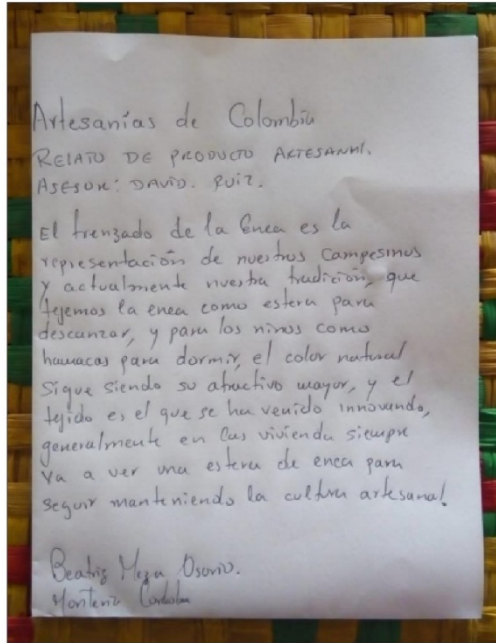 Artesanías de Colombia
RELATO DE PRODUCTO ARTESANAL.
ASESOR: DAVID. RUIZ.
El trenzado de la Enea es la
representación de nuestros campesinos
y actualmente nuestra tradición, que
tejemos la enea como estera para
descanzar, y para los ninos como
hamacas para dormir, el color natural
sigue siendo su atractivo mayor, y el
tejido es el que se ha venido innovando,
generalmente en las vivienda siempre
va a ver una estera de enea para
seguir manteniendo la cultura artesanal
Beatriz Meza Osorio.
Montería Cordoba